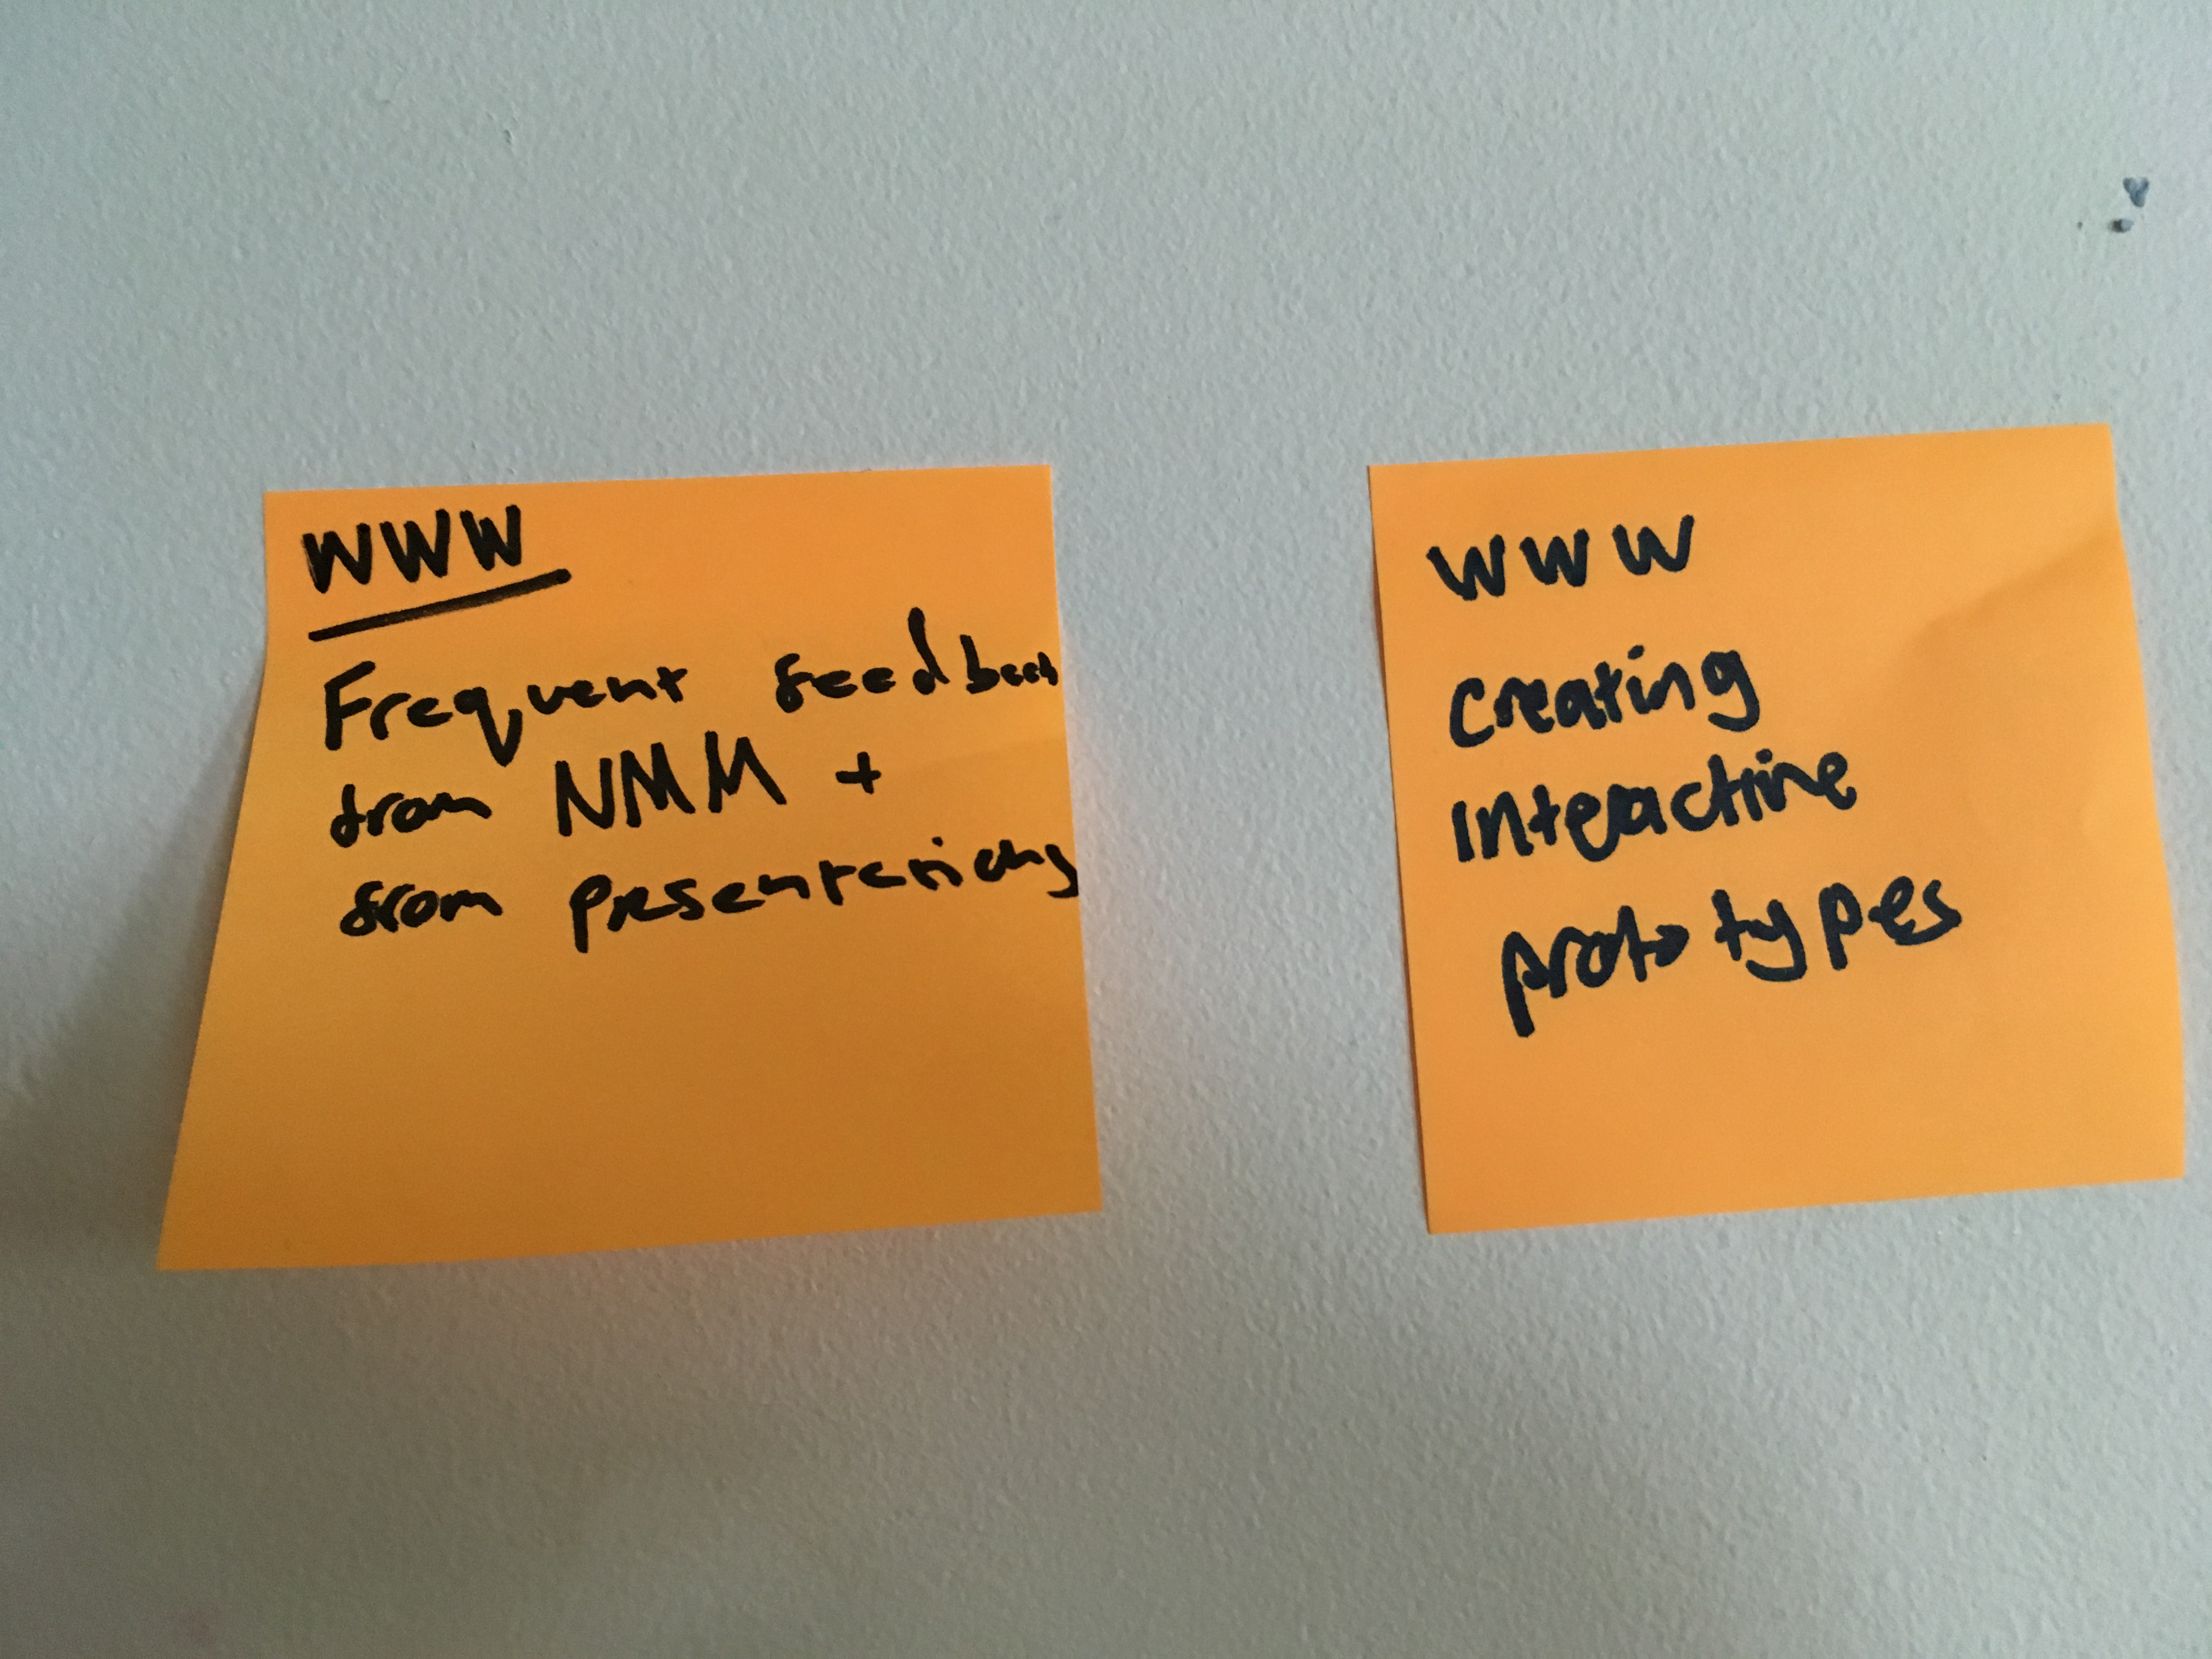 WWW
Frequent feedback
from NMM +
from presentations
WWW
creating
interactive
prototypes